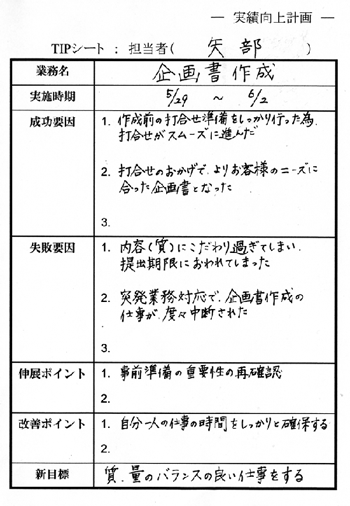 ― 実績向上計画 ―
TIPシート : 担当者( 矢部 )
業務名 企画書作成
実施時期 5/29 ～ 6/2
成功要因 1. 作成前の打合せ準備をしっかり行った為、
打合せがスムーズに進んだ
2. 打合せのおかげで、よりお客様のニーズに
合った企画書となった
3.
失敗要因 1. 内容(質)にこだわり過ぎてしまい、
提出期限におわれてしまった
2. 突発業務対応で、企画書作成の
仕事が、度々中断された
3.
伸展ポイント 1. 事前準備の重要性の再確認
2.
改善ポイント 1. 自分一人の仕事の時間をしっかりと確保する
2.
新目標 質、量のバランスの良い仕事をする